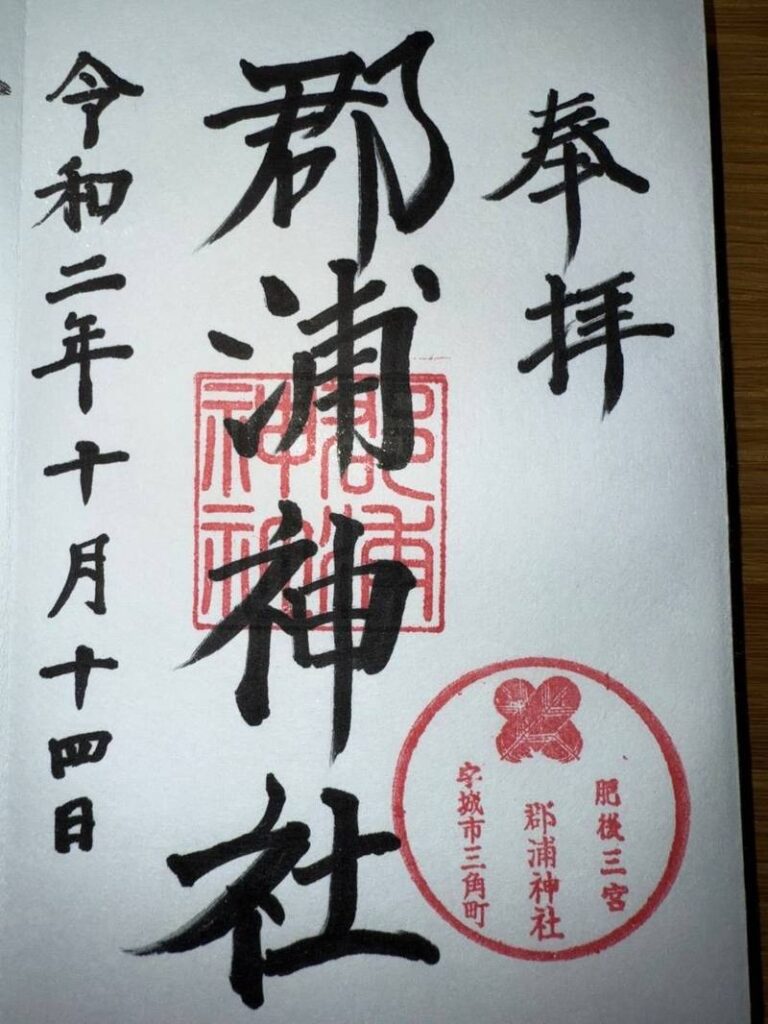 奉拝
郡浦神社
郡浦神社
肥後三宮
郡浦神社
宇城市三角町
令和二年十月十四日